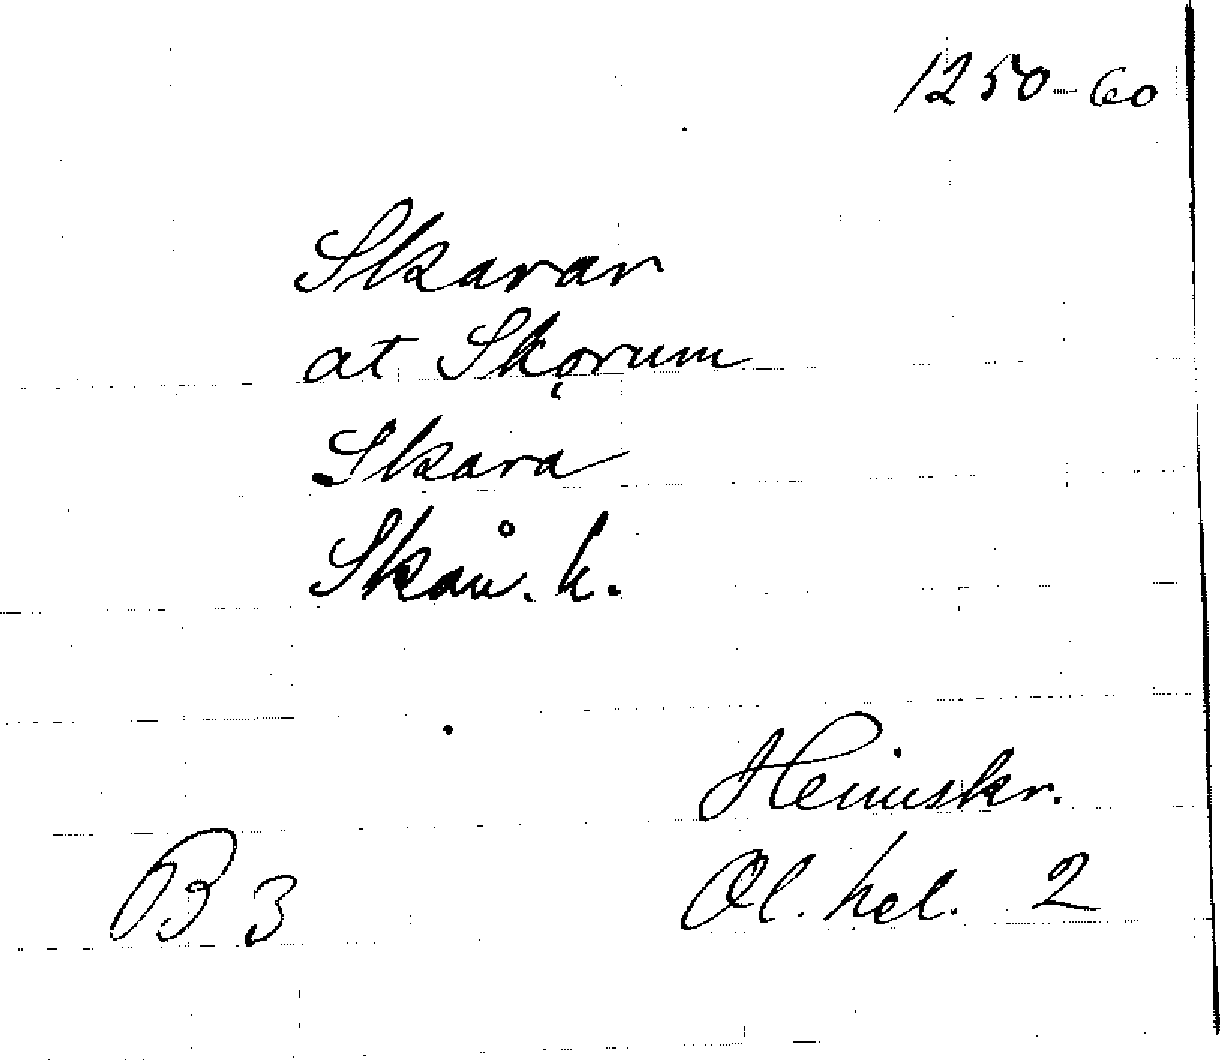 1250-60
Skarar
at Skǫrum
Skara
Skån. h.
Heimskr.
Ol. hel. 2
B 3